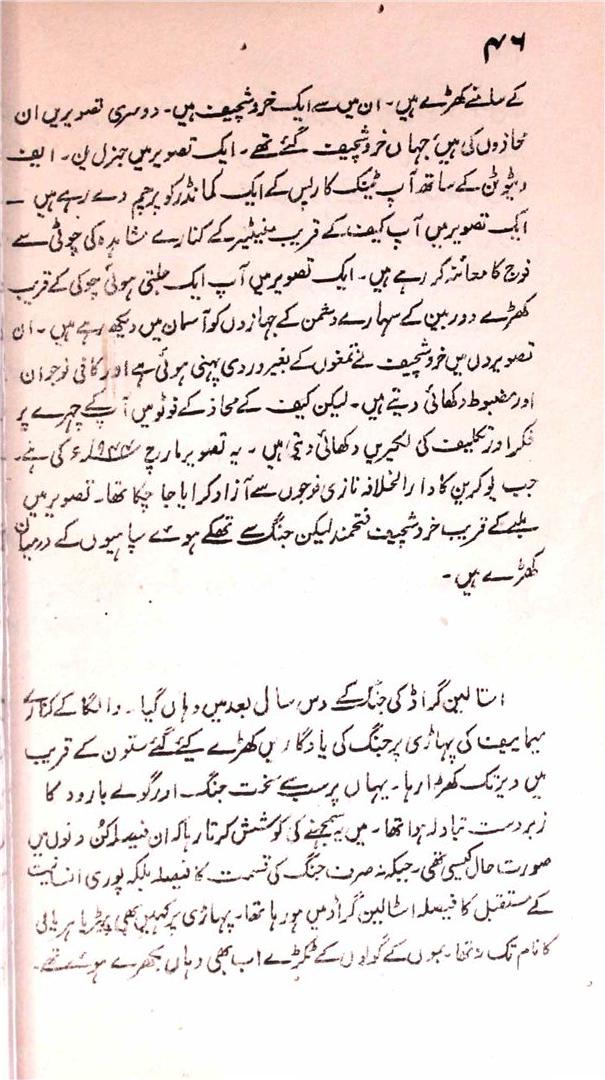 ۴۶
کے سامنے کھڑے ہیں۔ ان میں سے ایک خروشچیف ہیں۔ دوسری تصویریں ان
محاذوں کی ہیں جہاں خروشچیف گئے تھے۔ ایک تصویر میں جنرل ین۔ ایف
وٹیوٹن کے ساتھ آپ ٹینک کارپس کے ایک کمانڈر کو پرچم دے رہے ہیں۔
ایک تصویر میں آپ کیف کے قریب منیٹیر کے کنارے مشاہدہ کی چوٹی سے
فوج کا معائنہ کر رہے ہیں۔ ایک تصویر میں آپ ایک جلتی ہوئی چوکی کے قریب
کھڑے دوربین کے سہارے دشمن کے جہازوں کو آسمان میں دیکھ رہے ہیں۔ ان
تصویروں میں خروشچیف نے تمغوں کے بغیر وردی پہنی ہوئی ہے اور کافی نوجوان
اور مضبوط دکھائی دیتے ہیں۔ لیکن کیف کے محاذ کے فوٹو میں آپ کے چہرے پر
فکر اور تکلیف کی لکیریں دکھائی دیتی ہیں۔ یہ تصویر مارچ ۱۹۴۴ء کی ہے۔
جب یوکرین کا دارالخلافہ نازی فوجوں سے آزاد کرایا جا چکا تھا۔ تصویر میں
ملبے کے قریب خروشچیف فتحمند لیکن جنگ سے تھکے ہوئے سپاہیوں کے درمیان
کھڑے ہیں۔
اسٹالین گراڈ کی جنگ کے دس سال بعد میں وہاں گیا۔ والگا کے کنارے
میمایوف کی پہاڑی پر جنگ کی یادگار میں کھڑے کیئے گئے ستون کے قریب
میں دیر تک کھڑا رہا۔ یہاں پر سب سے سخت جنگ اور گولے بارود کا
زبردست تبادلہ ہوا تھا۔ میں یہ سمجھنے کی کوشش کرتا رہا کہ ان فیصلہ کن دنوں میں
صورت حال کیسی تھی۔ جبکہ نہ صرف جنگ کی قسمت کا فیصلہ بلکہ پوری انسانیت
کے مستقبل کا فیصلہ اسٹالین گراڈ میں ہو رہا تھا۔ پہاڑی پر کہیں بھی پیڑ یا ہریالی
کا نام تک نہ تھا۔ بموں کے گولوں کے ٹکڑے اب بھی وہاں بکھرے ہوئے تھے۔